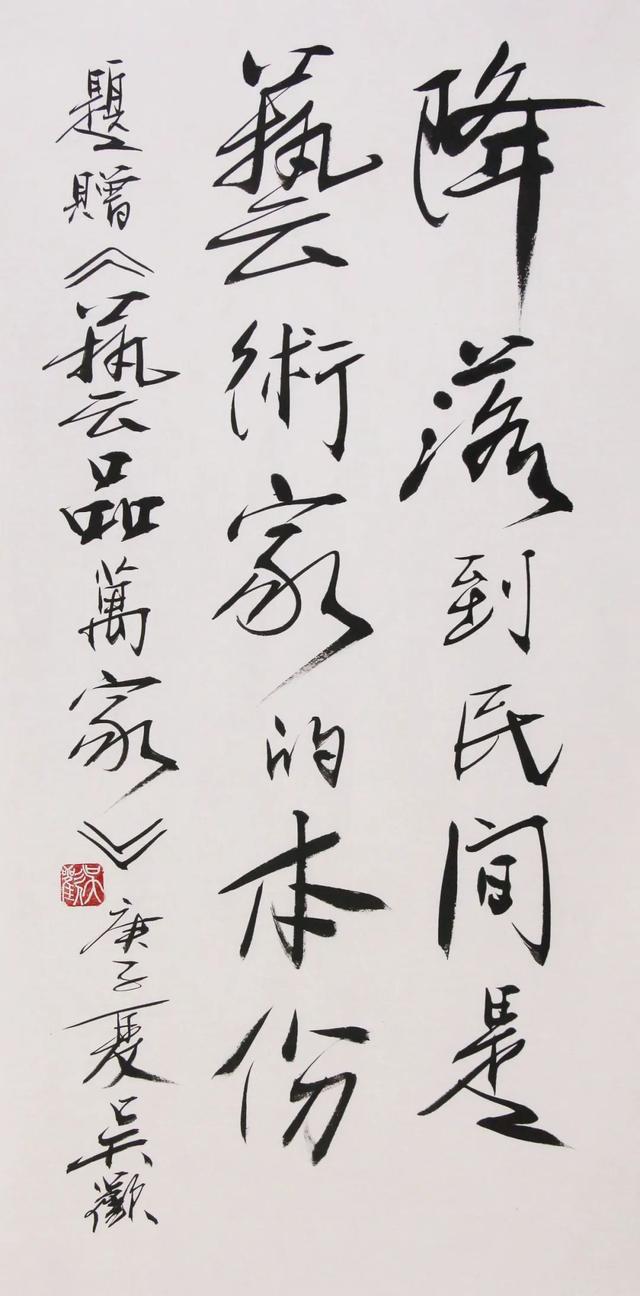 降落到民间是
藝術家的本份
题贈《藝品萬家》庚子夏吴歡
吴歡